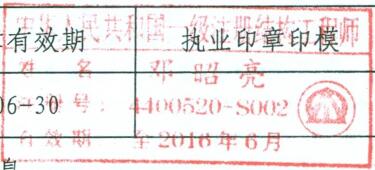 有效期 执业印章印模
中华人民共和国一级注册结构工程师
姓 名 邓昭亮
06-30
号: 4400520-S002
有效期: 至2016年6月